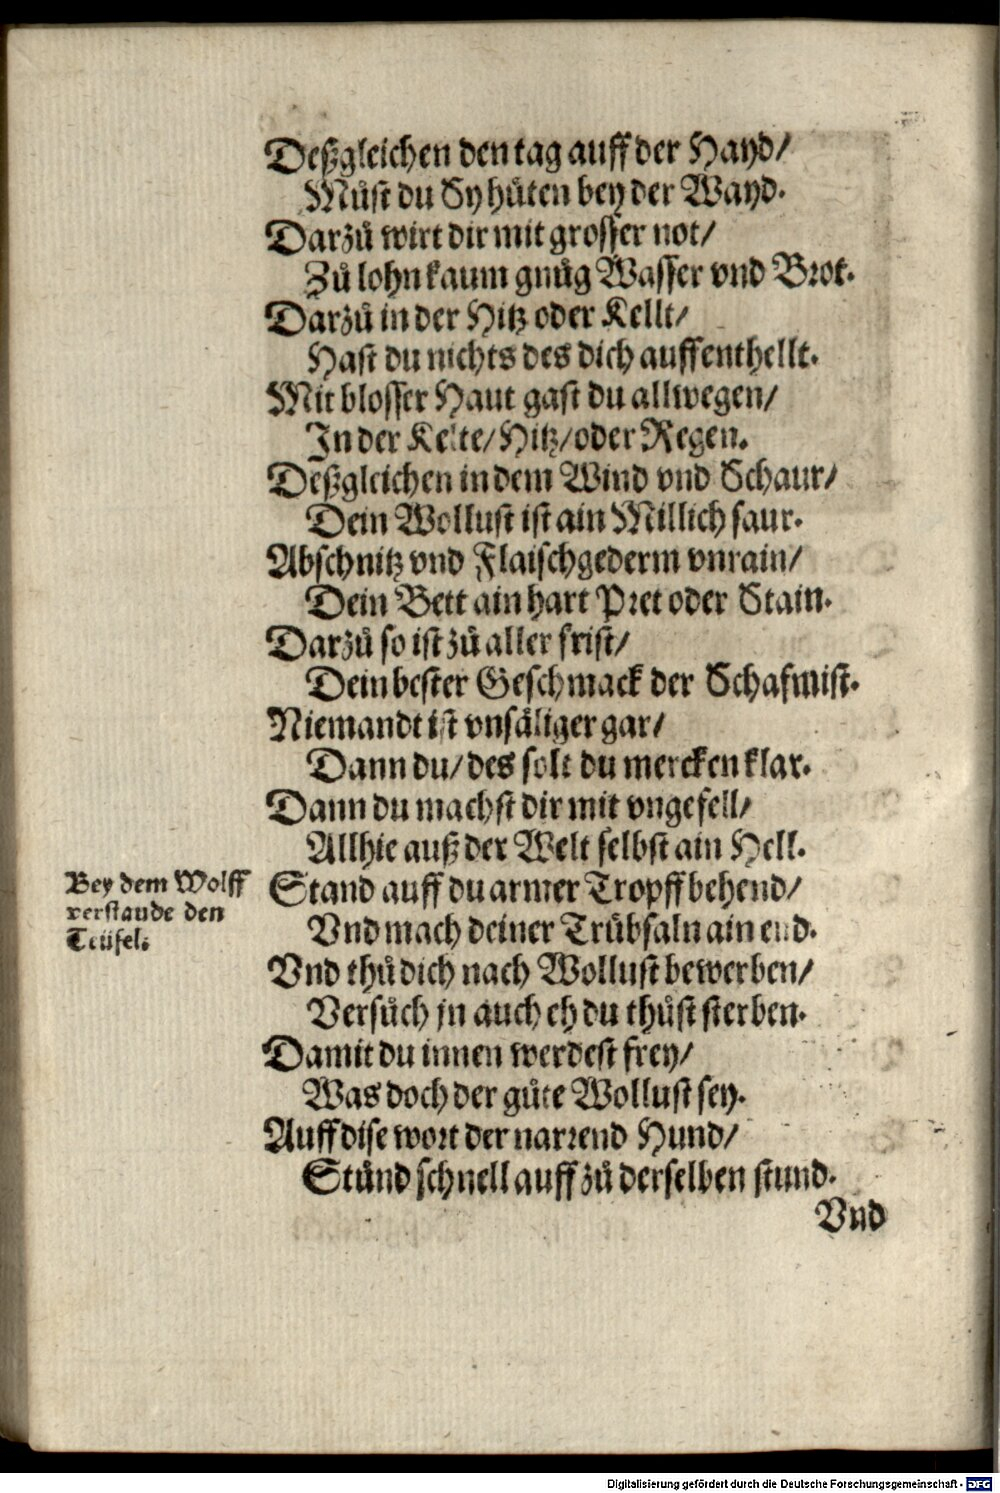 Deßgleichen den tag auff der Hayd/
Můst du Sy hůten bey der Wayd.
Darzů wirt dir mit grosser not/
Zů lohn kaum gnůg Wasser vnd Brot.
Darzů in der Hitz oder Kellt/
Hast du nichts des dich auffenthellt.
Mit blosser Haut gast du allwegen/
In der Kelte/ Hitz/ oder Regen.
Deßgleichen in dem Wind vnd Schaur/
Dein Wollust ist ain Millich saur.
Abschnitz vnd Flaischgederm vnrain/
Dein Bett ain hart Pret oder Stain.
Darzů so ist zů aller frist/
Dein bester Geschmack der Schafmist.
Niemandt ist vnsäliger gar/
Dann du/ des solt du mercken klar.
Dann du machst dir mit vngefell/
Allhie auß der Welt selbst ain Hell.
Bey dem Wolff
verstande den
Teüfel.
Stand auff du armer Tropff behend/
Vnd mach deiner Trübsaln ain end.
Vnd thů dich nach Wollust bewerben/
Versůch jn auch eh du thůst sterben.
Damit du innen werdest frey/
Was doch der gůte Wollust sey.
Auff dise wort der narrend Hund/
Stůnd schnell auff zů derselben stund.
Vnd
Digitalisierung gefördert durch die Deutsche Forschungsgemeinschaft - DFG